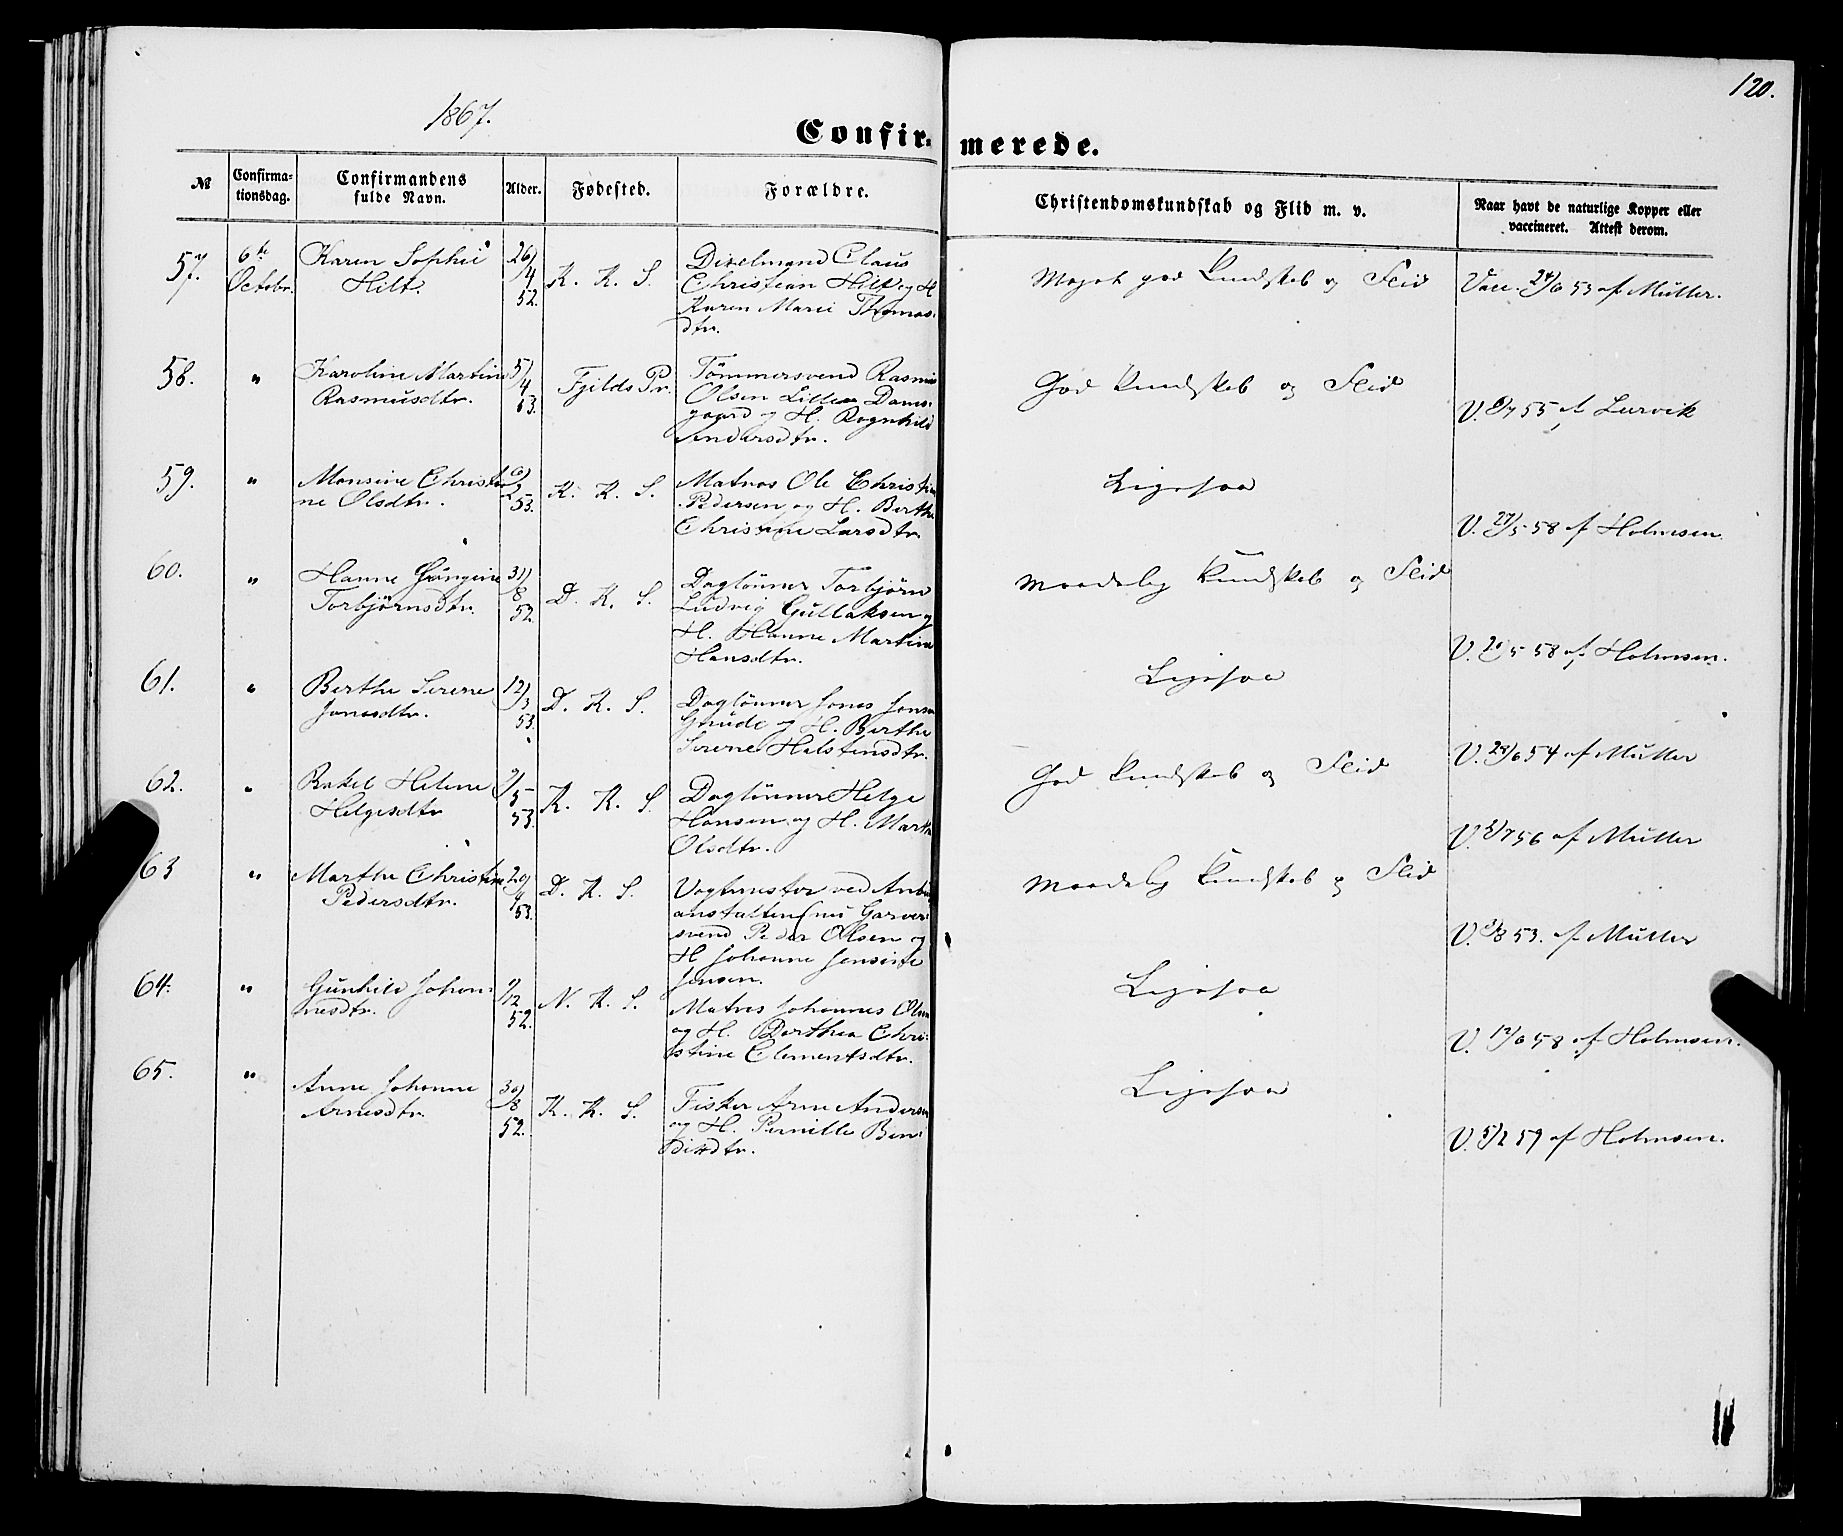 120.
1867.
Confirmerede.
№ Confirmationsdag. Confirmandens fulde Navn. Alder. Fødested. Forældre. Christendomskundskab og Flid m. v. Naar havt de naturlige Kopper eller vaccineret. Attest derom.
57. 6te Octobr. Karen Sophie Hilt. 26/4 52. K. K. S.
Claus
Christian Hilt og H.
Karen Marie Thomas-
dtr.
Meget god Kundskab og Flid
Vacc. 24/6 53 af Müller.
58. " Karoline Martine Rasmusdtr. 5/4 53. Fjilds Pr.
Tømmersvend Rasmus
Olsen Lille Dams-
gaard og H. Ragnhild
Andersdtr.
God Kundskab og Flid
V. 55 af Lervik
59. " Monsine Christi-
ne Olsdtr. 53. K. K. S.
Matros Ole Christian
Pedersen og H. Berthe
Christine Larsdtr.
Ligesaa
V. 27/5 58 af Holmsen.
60. " Hanne Torbjörnsdtr. 31/8 52. D. K. S.
Daglönner Torbjörn
Ludvig Gullaksen og
H. Hanne Martine
Hansdtr.
Maadelig Kundskab og Flid
V. 5 58 af Holmsen.
61. " Berthe Serene
Jonasdtr. 12/3 53. D. K. S.
Daglönner Jonas Jonsen
og H. Berthe
Serene Helstensdtr.
Ligesaa
V. 29/6 54 af Müller
62. " Rakel Helene
Helgesdtr 9/5 53. K. K. S.
Daglönner Helge
Hansen og H. Marthe
Olsdtr.
God Kundskab og Flid
V. 56 af Müller
63 " Marthe Christine
Pedersdtr. 53. D. K. S.
Vagtmester ved Arbeids-
anstalten (nu Garver-
svend Peder Olsen og
H Johanne Jensine
Jensen.
Maadelig Kundskab og Flid
V. 53. af Müller
64. " Gunhild Johan-
nesdtr. 9/12 52. N. K. S.
Matros Johannes Olsen
og H. Berthea Chri-
stine Clementsdtr.
Ligesaa
V. 12/6 58 af Holmsen.
65. " Anne Johanne
Arnesdtr. 30/8 52. K. K. S.
Fisker Arne Andersen
og H. Pernille Ben-
dixdtr.
Ligesaa
V. 5/2 59 af Holmsen.